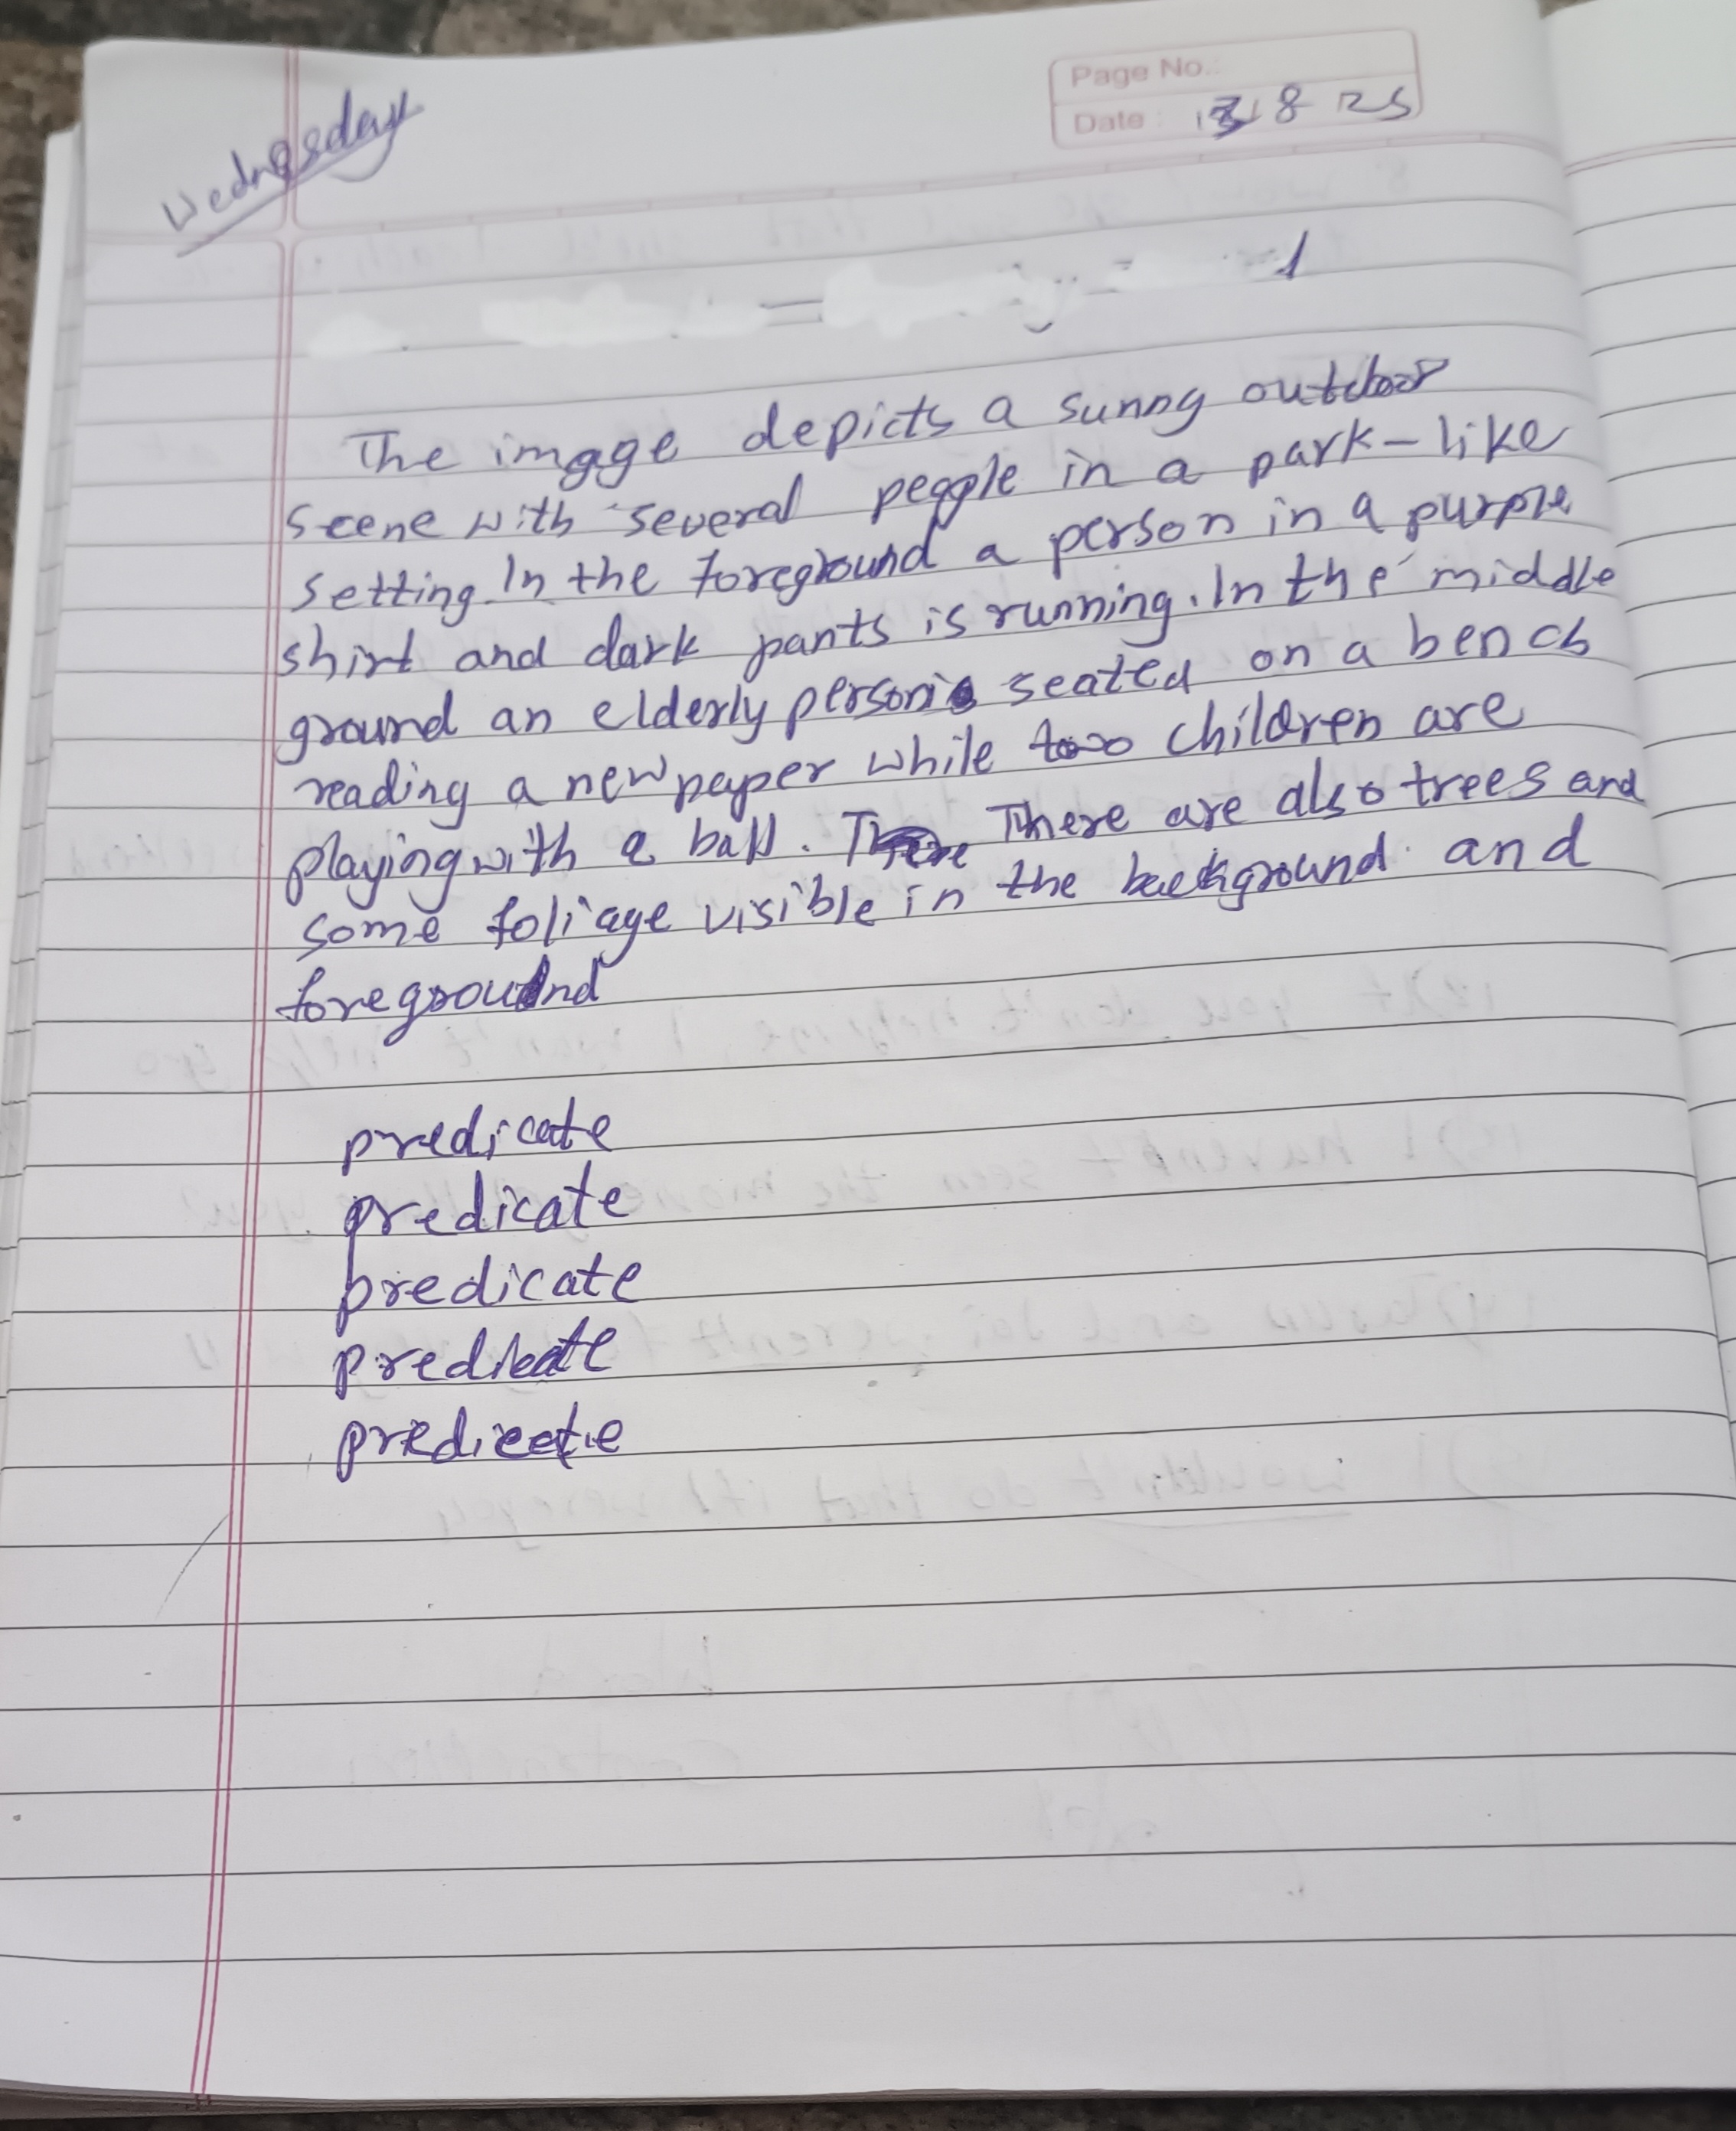 Wednesday
Page No.:
Date : 13 8 25
The image depicts a sunny outdoor
scene with several people in a park-like
setting. In the foreground a person in a purple
shirt and dark pants is running. In the middle
ground an elderly person is seated on a bench
reading a newpaper while two children are
playing with a ball. There There are also trees and
some foliage visible in the background and
foreground
predicate
predicate
predicate
predicate
predicate